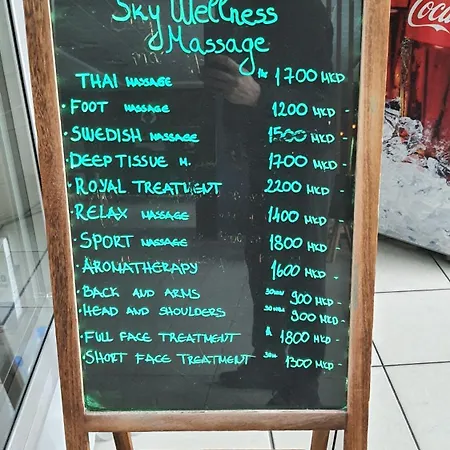 Sky Wellness
Massage
THAI MASSAGE 1h 1700 MKD
· FOOT MASSAGE 1200 MKD -
· SWEDISH MASSAGE 1500 MKD -
· DEEP TISSUE M. 1700 MKD -
· ROYAL TREATMENT 2200 MKD -
· RELAX MASSAGE 1400 MKD -
· SPORT MASSAGE 1800 MKD -
· AROMATHERAPY 1600 MKD -
· BACK AND ARMS 30min 900 MKD -
· HEAD AND SHOULDERS 30min 900 MKD -
· FULL FACE TREATMENT 1h 1800 MKD -
· SHORT FACE TREATMENT 30m 1300 MKD -
Coca